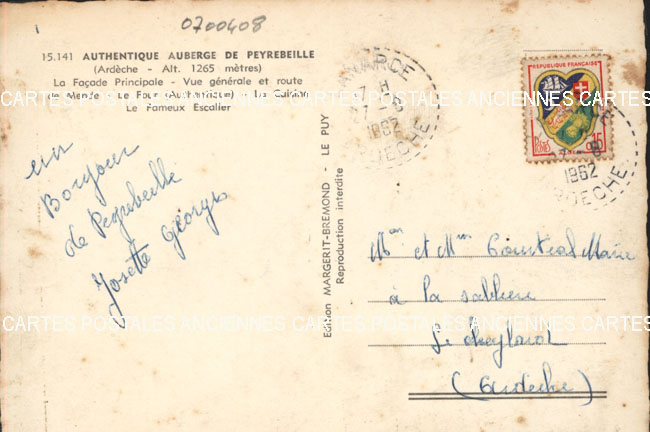 0700408
15.141 AUTHENTIQUE AUBERGE DE PEYREBEILLE
(Ardèche - Alt. 1265 mètres)
La Façade Principale - Vue générale et route
de Mende - Le Four (Authentique) - La Cuisine
Le Fameux Escalier
un
Bonjour
de Peyrebeille
Josette Georges
Edition MARGERIT-BREMOND - LE PUY
Reproduction interdite
1962
ARDECHE
RÉPUBLIQUE FRANÇAISE
POSTES
0,15
1962
ARDECHE
Mr et Mme Courtial Marie
à la sablière
Le cheylard
(Ardèche)
CARTES POSTALES ANCIENNES CARTES POSTALES ANCIENNES CARTES POSTALES ANCIENNES
CARTES POSTALES ANCIENNES CARTES POSTALES ANCIENNES CARTES POSTALES ANCIENNES